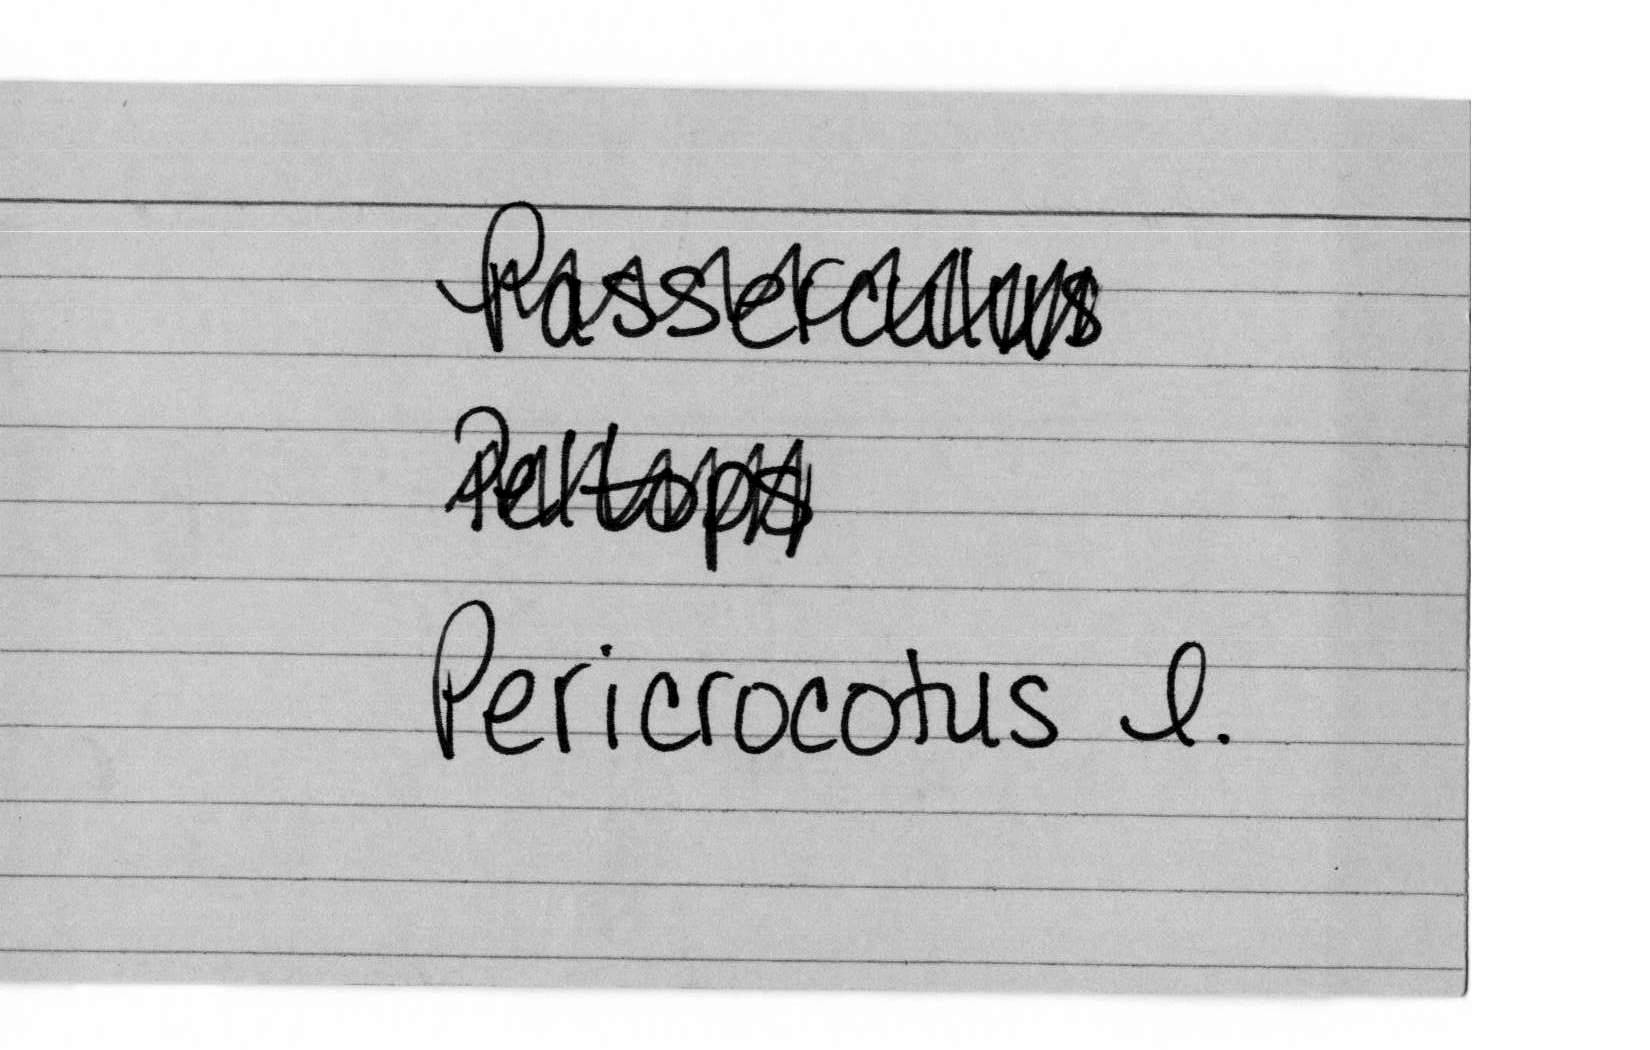 Passerculus
Peltops
Pericrocotus l.